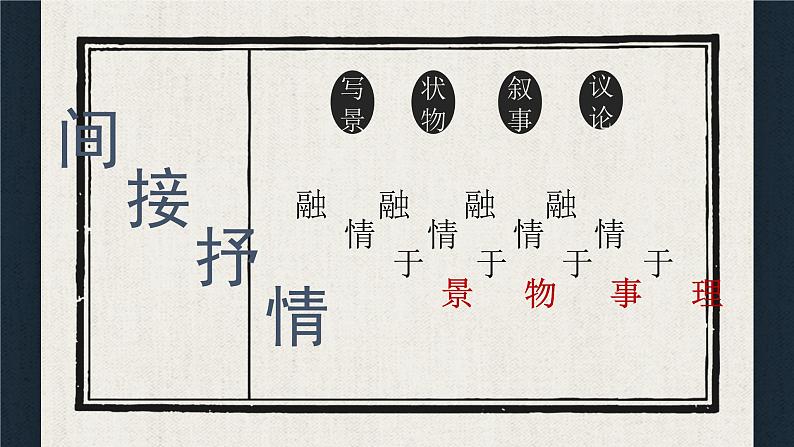 间接抒情
写景
状物
叙事
议论
融情于景
融情于物
融情于事
融情于理